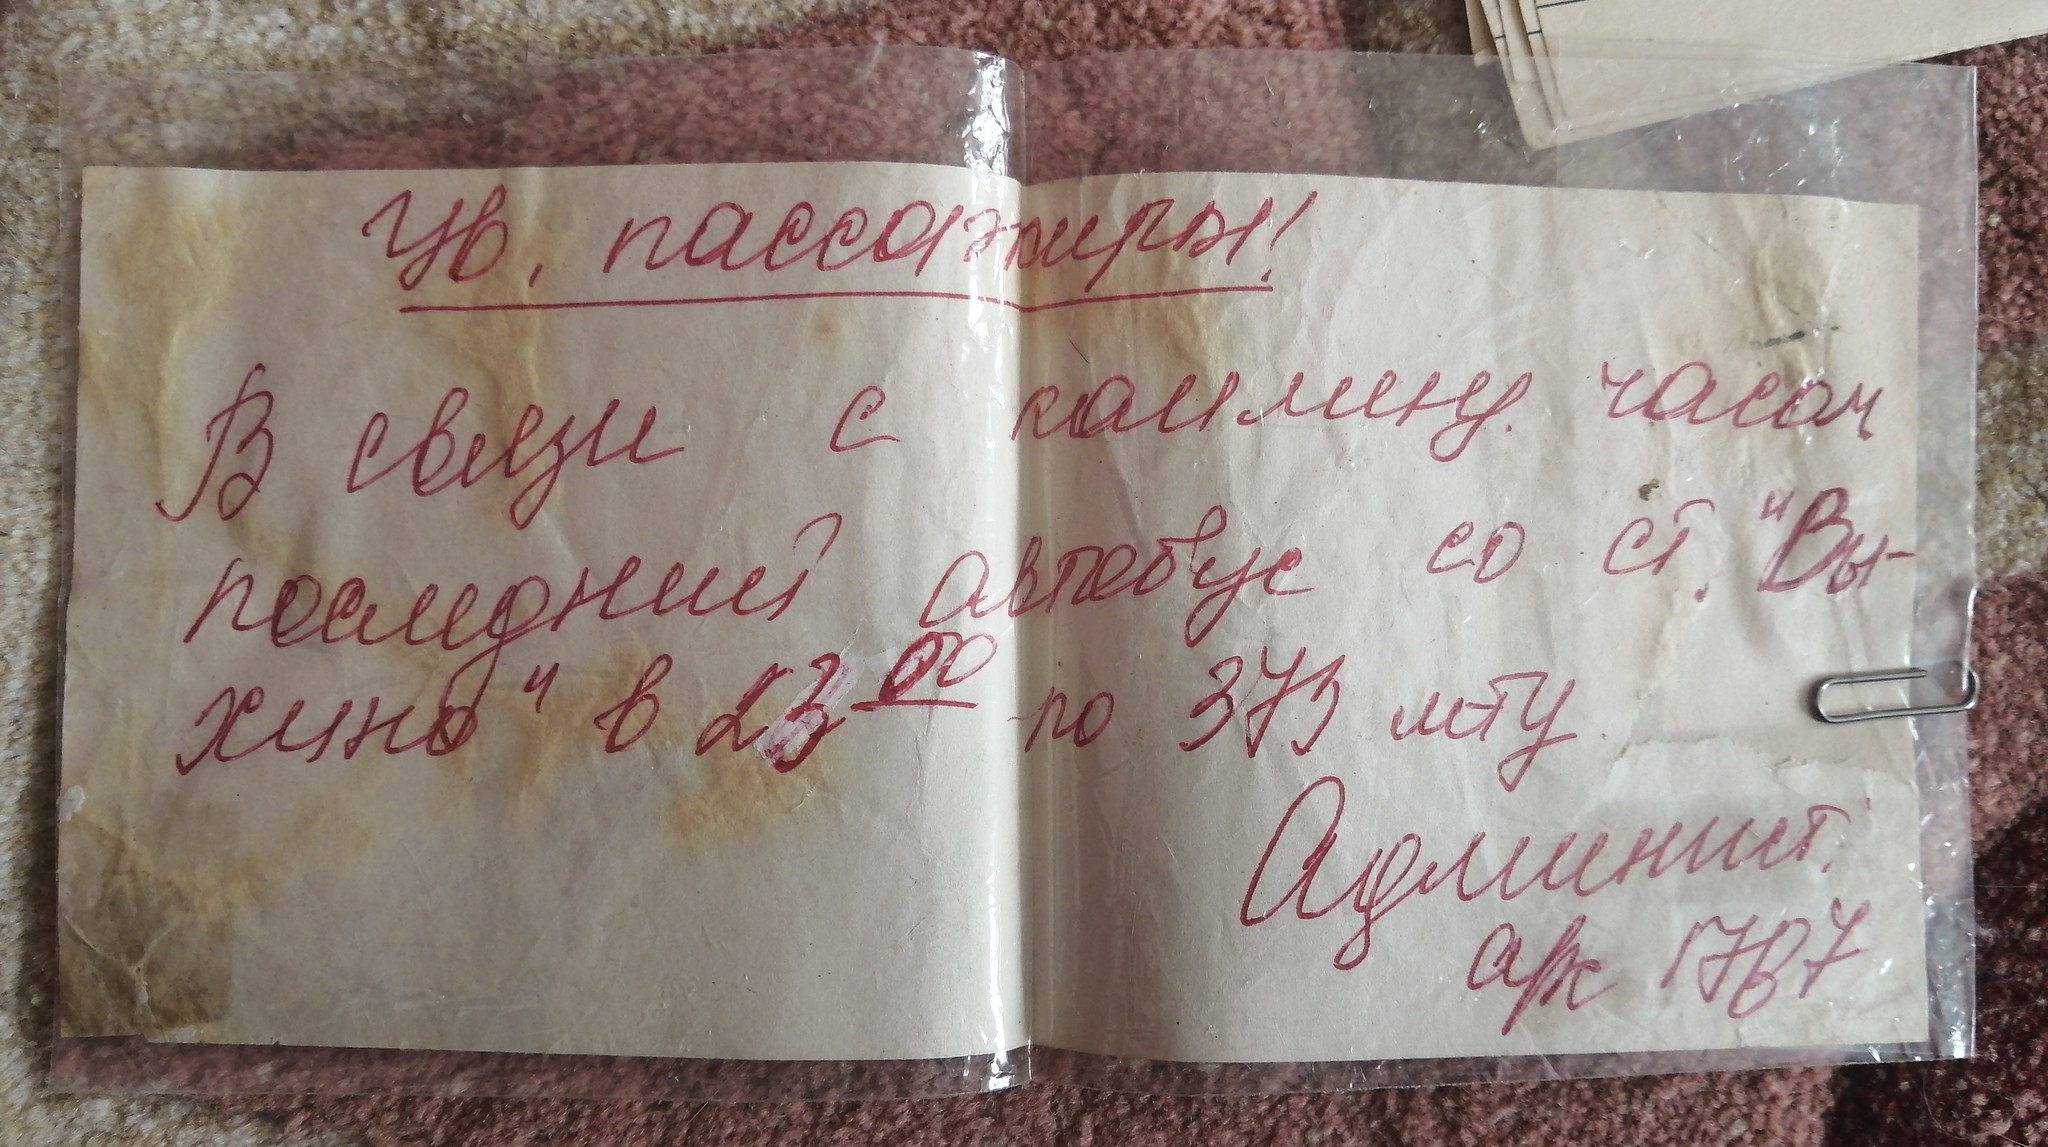 Ув. пассажиры!
В связи с каммен. часом
последний автобус со ст. "Вы-
хино" в 23 00 по 373 м-ту
Админист.
арк 1787